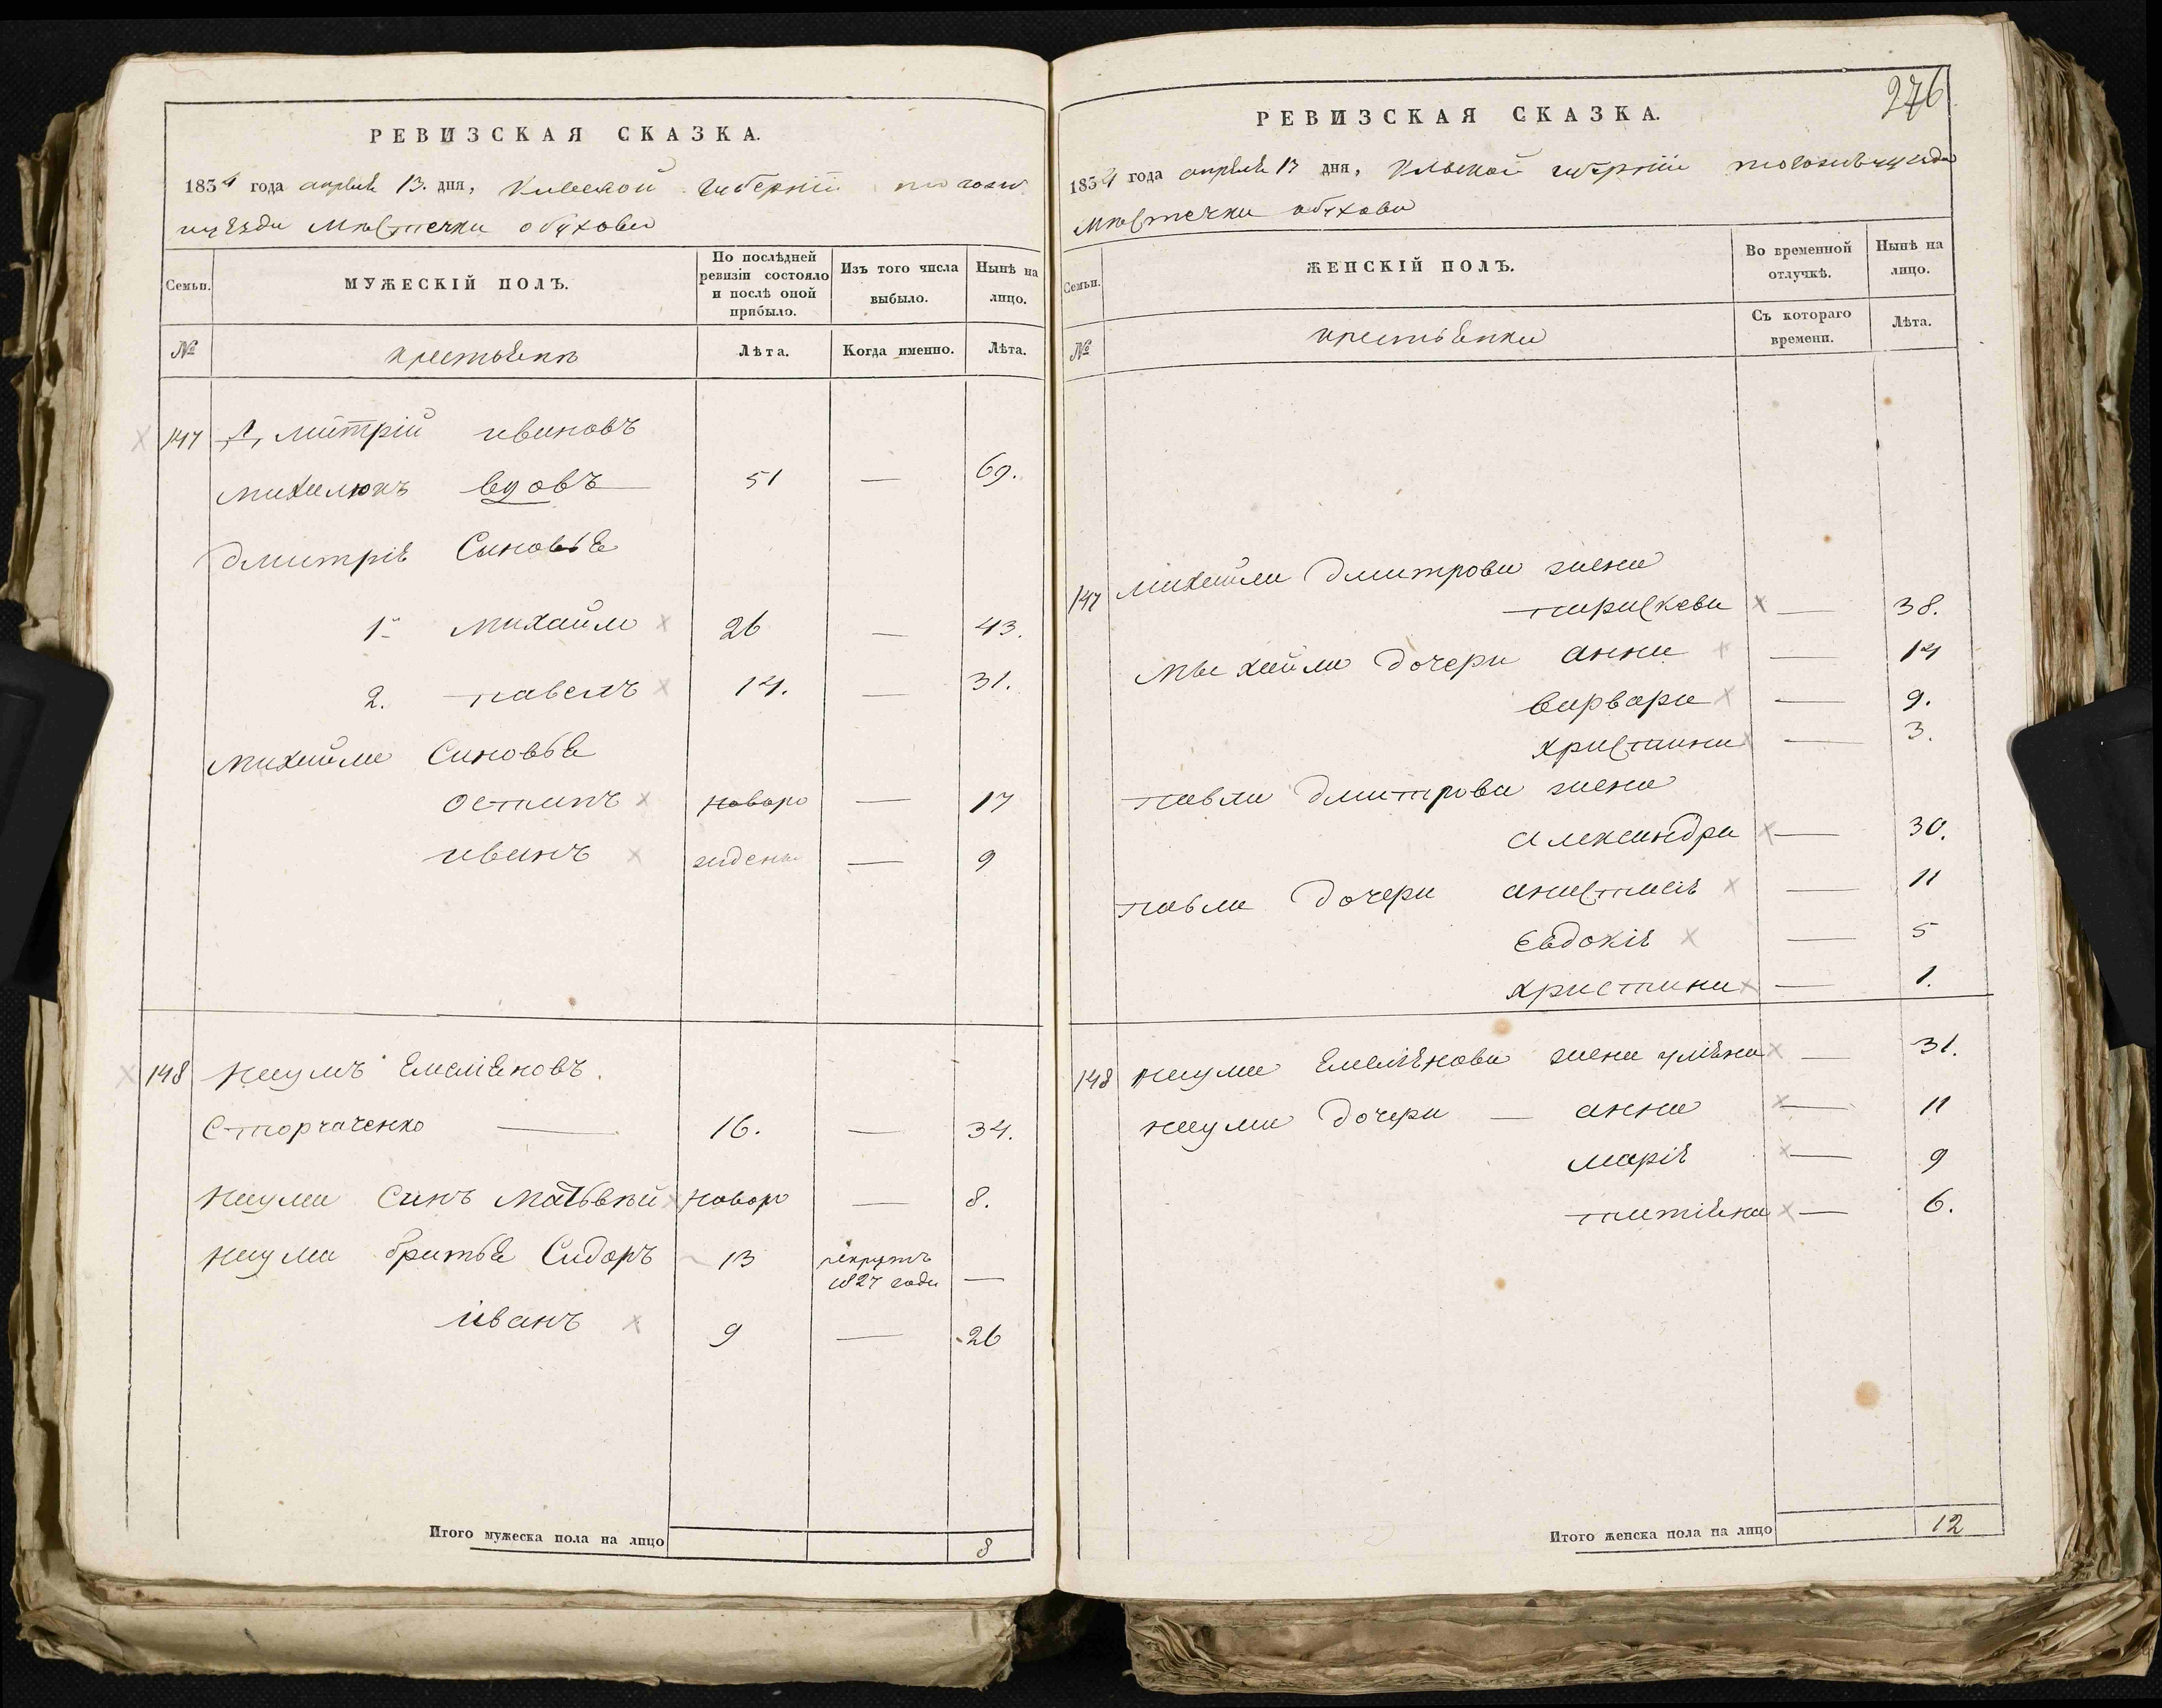 РЕВИЗСКАЯ СКАЗКА.
1834 года апреля 13. дня, Киевской губернии тогожъ
уезда мѣстечка обухова
Семьи.
МУЖЕСКІЙ ПОЛЪ.
По послѣдней ревизіи состояло и послѣ оной прибыло.
Изъ того числа выбыло.
Нынѣ на лицо.
№
крестьянъ
Лѣта.
Когда именно.
Лѣта.
147 Дмитрій ивановъ
михалюкъ вдовъ 51 — 69.
Дмитрія Синовья
1й михайло 26 — 43.
2. павелъ 14. — 31.
михайла Синовья
остапъ новоро — 17
иванъ жденн — 9
148 наумъ Емеліяновъ
Сторчаченко — 16. — 34.
наума Синъ Матвѣй новоро — 8.
наума братья Сидоръ 13 рекрутъ 1827 года —
иванъ 9 — 26
Итого мужеска пола на лицо 8
276
РЕВИЗСКАЯ СКАЗКА.
1834 года апреля 13 дня, Киевской губерніи тогожъ уезда
мѣстечка обухова
Семьи.
ЖЕНСКІЙ ПОЛЪ.
Во временной отлучкѣ.
Нынѣ на лицо.
№
крестьянки
Съ котораго времени.
Лѣта.
147 михайла Дмитрова жена
параскева — 38.
михайла дочери анна — 14
варвара — 9.
христина — 3.
павла Дмитрова жена
александра — 30.
павла дочери анастасія — 11
Евдокія — 5
христина — 1.
148 наума Емеліянова жена уліяна — 31.
наума дочери — анна — 11
марія — 9
татіяна — 6.
Итого женска пола на лицо 12